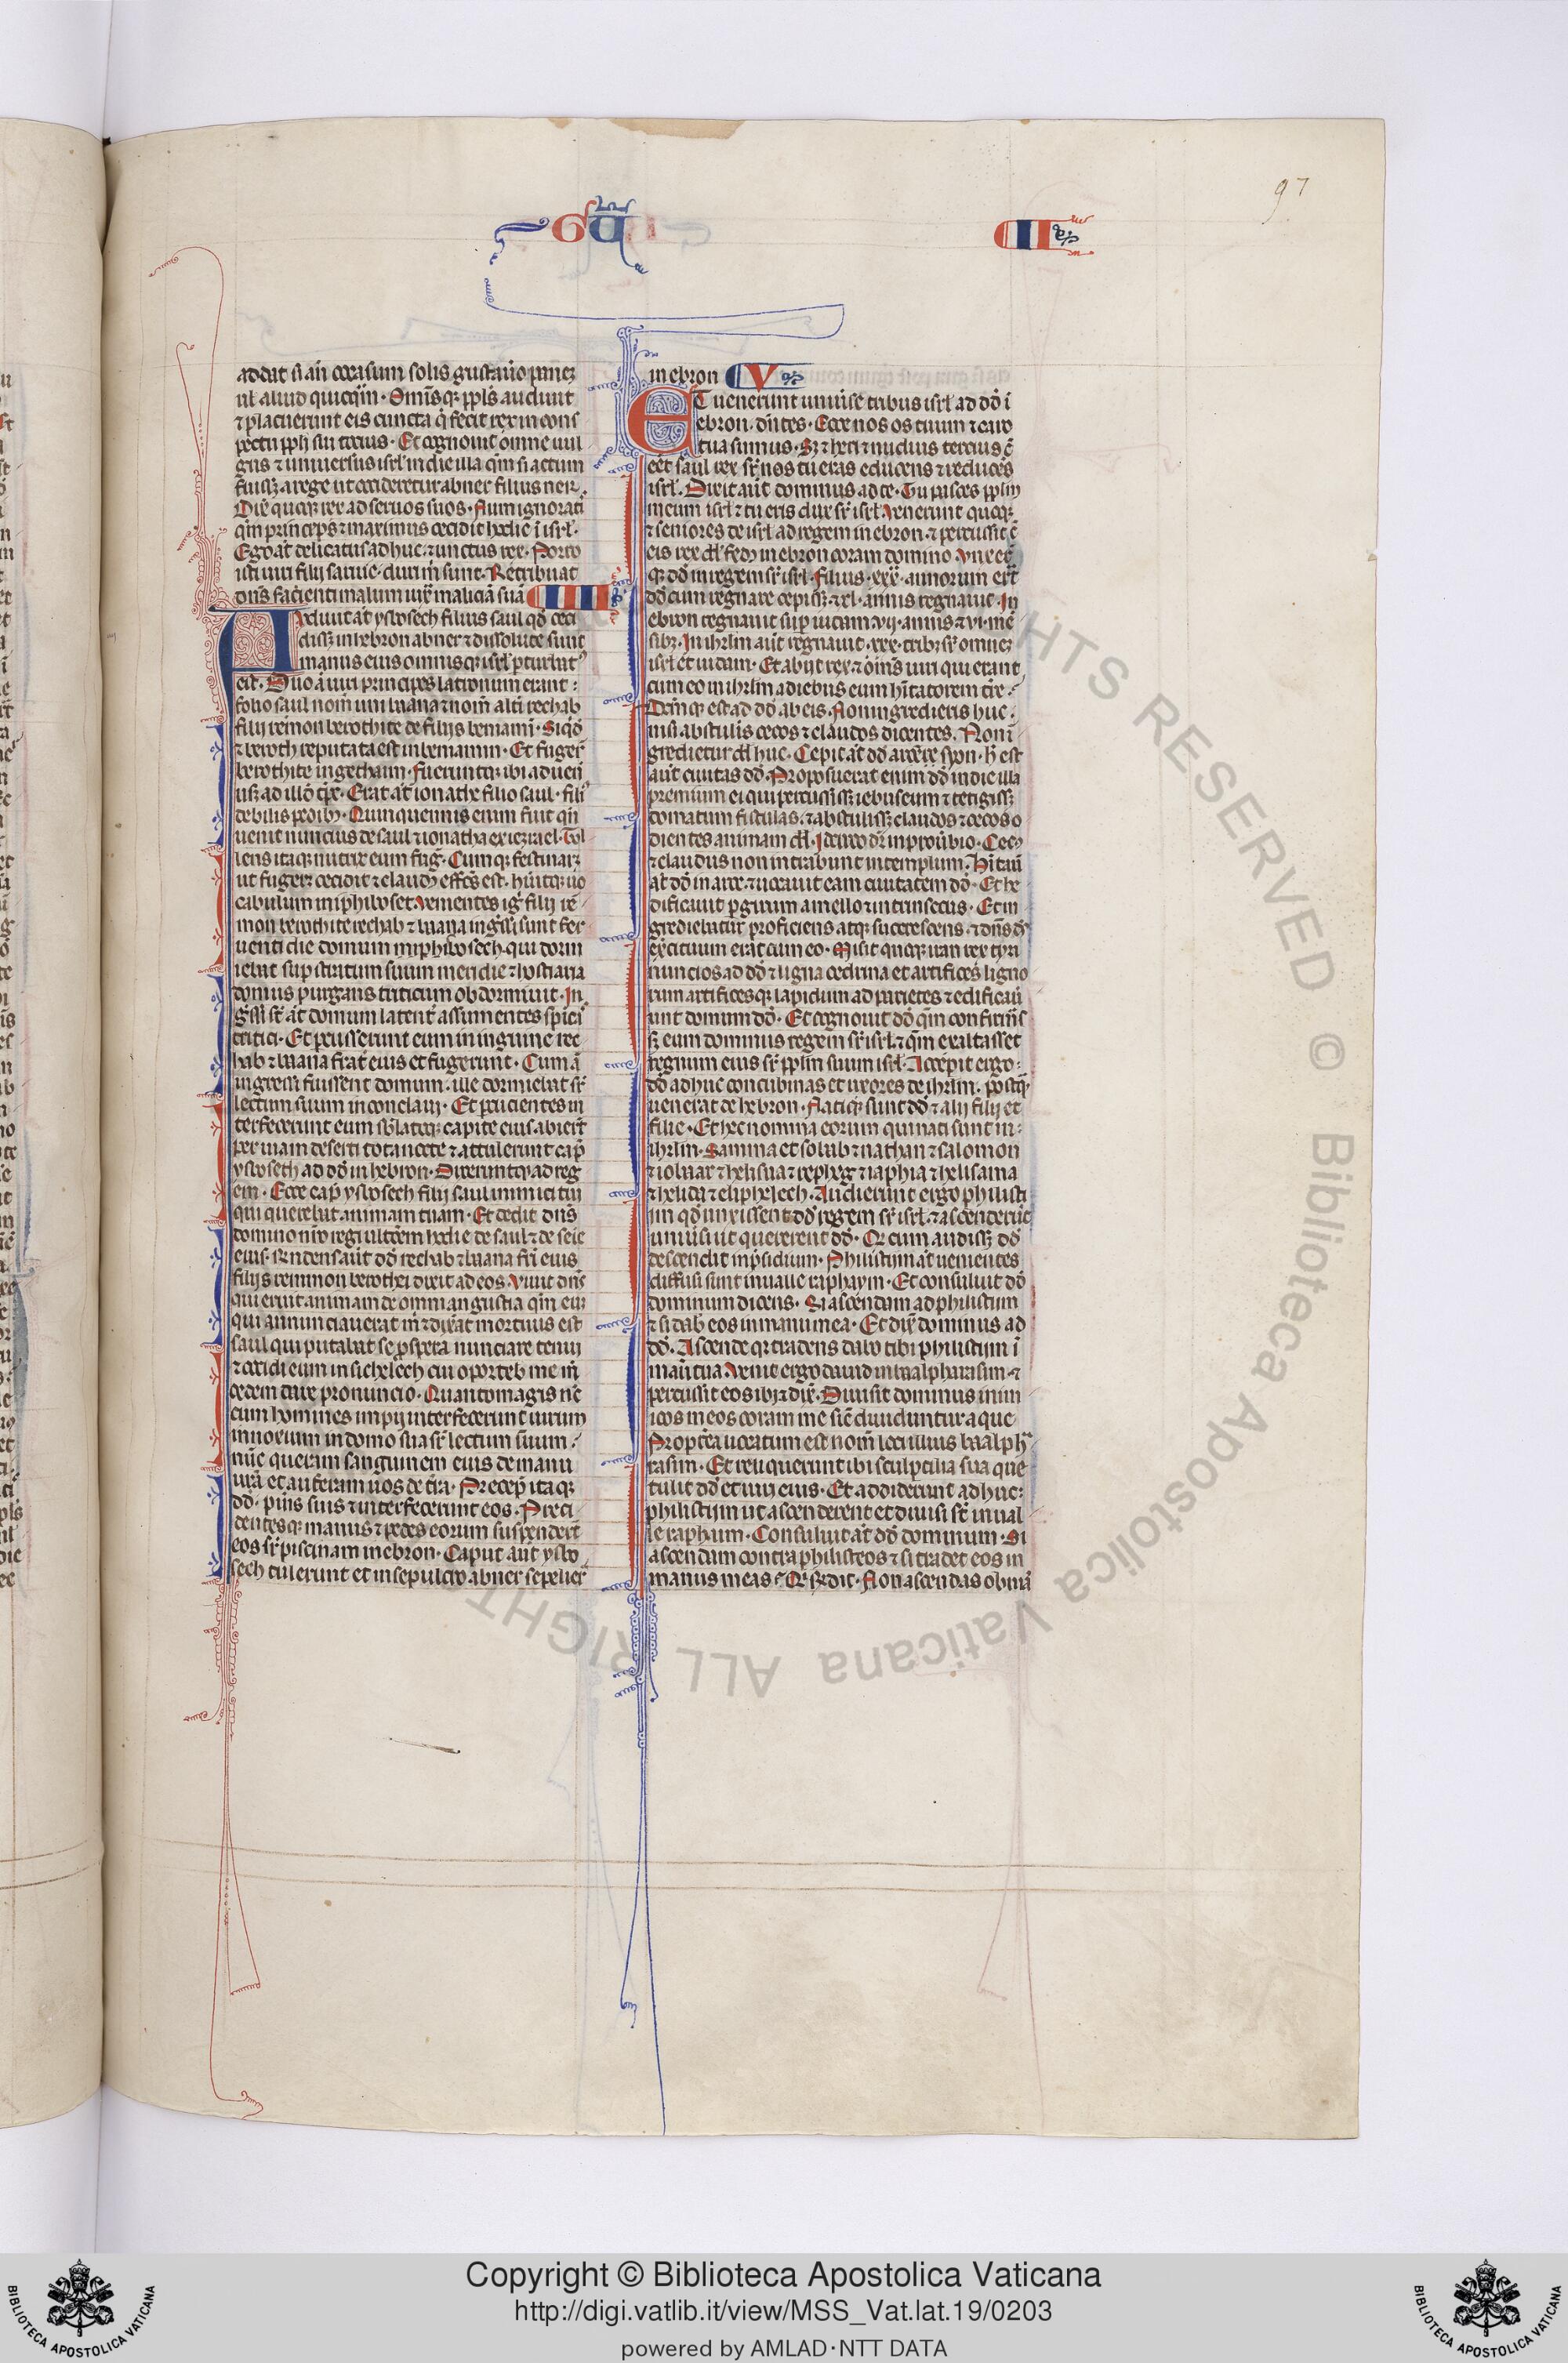 97
GŪ
II
addat si an̄ occasum solis gustauero panē
ul̓ aliud quicq̄m. Omīsq; ppl̓s audiuit
⁊ placuerunt eis cuncta q̄ fecit rex in cons
pectu ppl̓i sui tocius. Et cognouit omne uul
gus ⁊ uniuersus isrl̓ in die illa qm̄ n̄ actum
fuiss; a rege ut occideretur abner filius ner.
Dix̄ quoq; rex ad seruos suos. Num ignorati
qm̄ princeps ⁊ maximus cecidit hodie ī isrl̓.
Ego aūt delicatus adhuc ⁊ unctus rex. Porro
isti uiri filij saruie duri m̄ sunt. Retribuat
dn̄s facienti malum iux̄ maliciā suā IIII
Audiuit aūt ysboseth filius saul qd̓ ceci
diss; in hebron abner ⁊ dissolute sunt
manus eius omnisq; isrl̓ pturbat
est. Duo aūt uiri principes latronum erant
filio saul nom̄ uni baana ⁊ nom̄ alt̓i rechab
filij remon berothite de filijs beniamī. Siqd̓
⁊ beroth reputata est in beniamin. Et fuger̄
berothite in gethaim. fueruntq; ibi aduen̄
usq; ad illd̓ tp̄s. Erat aūt ionathe filio saul fili
debilis pedib;. Quinquennis enim fuit qn̄
uenit nuncius de saul ⁊ ionatha ex iezrael. Tol
lens itaq; nutrix eum fug̓. Cumq; festinar;
ut fuger; cecidit ⁊ claud; effc̄s est. huitq; uo
cabulum miphiboset. Uenientes ig̓ filij re
mon berothite rechab ⁊ baana ingr̄si sunt fer
uenti die domum miphiboseth qui dormi
iebat sup stratum suum meridie ⁊ hostiaria
domus purgans triticum obdormiuit. In
gr̄si st̄ aūt domum latent̓ assumentes spici
tritici. Et pcusserunt eum in inguine rec
hab ⁊ baana frat̓ eius et fugerunt. Cum aū
ingressi fuissent domum. ille dormiebat sr̄
lectum suum in conclaui. Et pcucientes in
terfecerunt eum sublatoq; capite eius abiert̄
per uiam deserti tota nocte ⁊ attulerunt cap̄
ysboseth ad dd̓ in hebron. Dixeruntq; ad reg
em. Ecce cap̄ ysboseth filij saul inimici tui
qui querebat animam tuam. Et dedit dn̄s
domino nr̄o regi ultōem hodie de saul ⁊ de seīe
eius. Respondens aūt dd̓ rechab ⁊ baana fr̄i eius
filijs remmon berothei dixit ad eos. Uiuit dn̄s
qui eruit animam de omni angustia qm̄ eum
qui annunciauerat m̄ ⁊ dix̄at mortuus est
saul qui putabat se prospera nunciare tenui
⁊ occidi eum in sichelech cui oporteb̓ me m̄
cedem dare pro nuncio. Quanto magis nc̄
cum homines impij interfecerunt uirum
innoxium in domo sua sr̄ lectum suum.
nūc queram sanguinem eius de manu
urā et auferam uos de t̓ra. Precep̓ itaq;
dd̓. pu̓is suis ⁊ interfecerunt eos. Preci
dentesq; manus ⁊ pedes eorum suspendert̄
eos sr̄ piscinam in ebron. Caput aūt ysbo
seth tulerunt et in sepulcro abner sepelier̄
in ebron V
ET uenerunt uniūse tribus isrl̓ ad dd̓ ī
ebron. dn̄tes. Ecce nos os tuum ⁊ caro
tua sumus. S; ⁊ heri ⁊ nudius tercius c̄
eēt saul rex sr̄ nos tu eras educens ⁊ reducēs
isrl̓. Dixit aūt dominus ad te. Tu pasces pplm̄
meum isrl̓ ⁊ tu eris dux sr̄ isrl̓. Uenerunt quoq;
⁊ seniores de isrl̓ ad regem in ebron. ⁊ percussit c̄
eis rex dd̓ fed; in ebron coram domino. Unxert̄
q; dd̓ in regem sr̄ isrl̓. Filius. xxx. annorum er̄t
dd̓ cum regnare cepiss; ⁊ xl. annis regnauit. In
ebron regnauit sup iudam vij. annis ⁊ vi. mē
sib;. In ihrl̄m aūt regnauit. xxx. trib; sr̄ omnē
isrl̓ et iudam. Et abijt rex ⁊ om̄s uiri qui erant
cum eo in ihrl̄m ad iebuseum hītatorem t̓re.
Dcm̄q; est ad dd̓ ab eis. Non ingredieris huc.
nisi abstulis cecos ⁊ claudos dicentes. Non ī
gredietur dd̓ huc. Cepit aūt dd̓ arcem syon. h̓ est
aūt ciuitas dd̓. Proposuerat enim dd̓ in die illa
premium ei qui percussiss; iebuseum ⁊ tetigiss;
domatum fistulas. ⁊ abstuliss; claudos ⁊ cecos o
dientes animam dd̓. Idcirco dr̄ in prouerbio. Cec;
⁊ claudus non intrabunt in templum. Hītau̓
aūt dd̓ in arce. ⁊ uocauit eam ciuitatem dd̓. Et he
dificauit p girum a mello ⁊ intrinsecus. Et in
grediebatur proficiens atq; succrescens. ⁊ dn̄s ds̄
exc̓ituum erat cum eo. Misit quoq; iran rex tyri
nuncios ad dd̓ ⁊ ligna cedrina et artifices ligno
rum artificesq; lapidum ad parietes ⁊ edificau̓
unt domum dd̓. Et cognouit dd̓ qm̄ confirmas
s; eum dominus regem sr̄ isrl̓. ⁊ qm̄ exaltasset
regnum eius sr̄ pplm̄ suum isrl̓. Accepit ergo
dd̓ adhuc concubinas et uxores de ihrl̄m. postq̄
uenerat de hebron. Natiq; sunt dd̓ ⁊ alij filij et
filie. Et hec nomina eorum qui nati sunt in
ihrl̄m. Samina et sobab ⁊ nathan ⁊ salomon
⁊ iobaar ⁊ helisua ⁊ repheg ⁊ iaphia ⁊ helisama
⁊ helida ⁊ eliphelech. Audierunt ergo philisti
im qd̓ unxissent dd̓ regem sr̄ isrl̓. ⁊ ascenderūt
uniūsi ut quererent dd̓. Qd̓ cum audiss; dd̓
descendit in p̄sidium. Philistiim aūt uenientes
diffusi sunt in ualle raphaym. Et consuluit dd̓
dominum dicens. Si ascendam ad philistiim
⁊ si dab̓ eos in manu mea. Et dix̄ dominus ad
dd̓. Ascende qr̄ tradens dabo tibi philistiim ī
manu tua. Uenit ergo dauid in baalpharasim. ⁊
percussit eos ibi ⁊ dix̄. Diuisit dominus inim
icos meos coram me sic̄ diuiduntur aque
Propt̓ea uocatum est nom̄ loci illius baalpha
rasim. Et reliquerunt ibi sculptilia sua que
tulit dd̓ et uiri eius. Et addiderunt adhuc
philistijm ut ascenderent et diuisi st̄ in ual
le raphaim. Consuluit aūt dd̓ dominum. Si
ascendam contra philisteos ⁊ si tradet eos in
manus meas. Qi r̄ndit. Non ascendas obuiā
HTS RESERVED © Biblioteca Apostolica Vaticana ALL RIGHTS
Copyright © Biblioteca Apostolica Vaticana
http://digi.vatlib.it/view/MSS_Vat.lat.19/0203
powered by AMLAD·NTT DATA
BIBLIOTECA APOSTOLICA VATICANA
BIBLIOTECA APOSTOLICA VATICANA